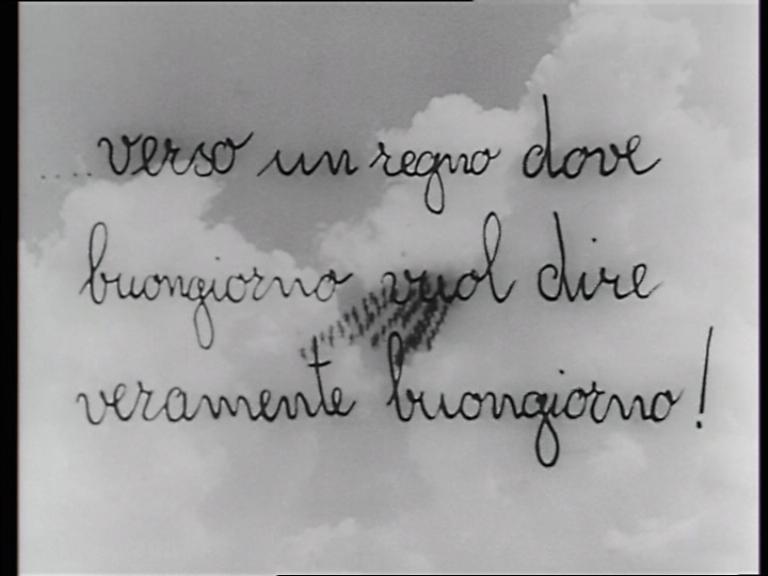 ....verso un regno dove
buongiorno vuol dire
veramente buongiorno!